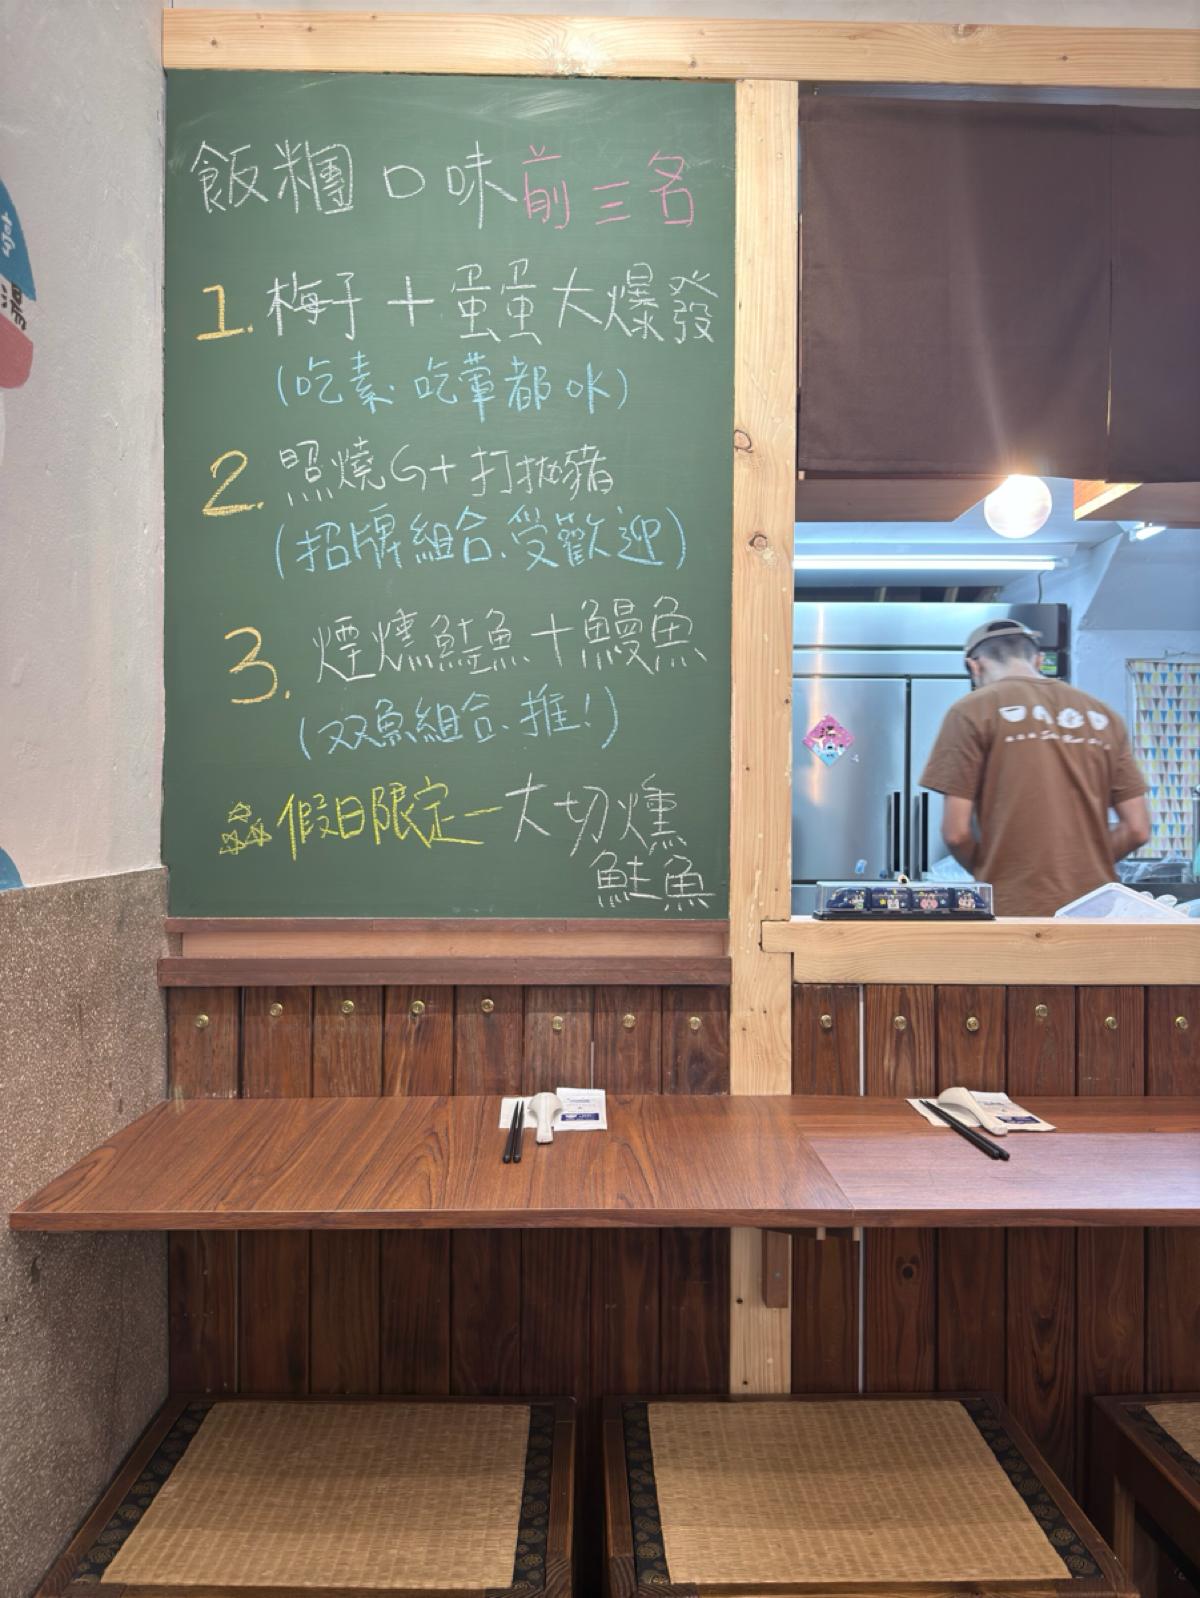 飯糰口味前三名
1. 梅子+蛋蛋大爆發
(吃素、吃葷都ok)
2. 照燒G+打拋豬
(招牌組合、受歡迎)
3. 煙燻鮭魚+鰻魚
(双魚組合、推!)
假日限定-大切燻
鮭魚
湯